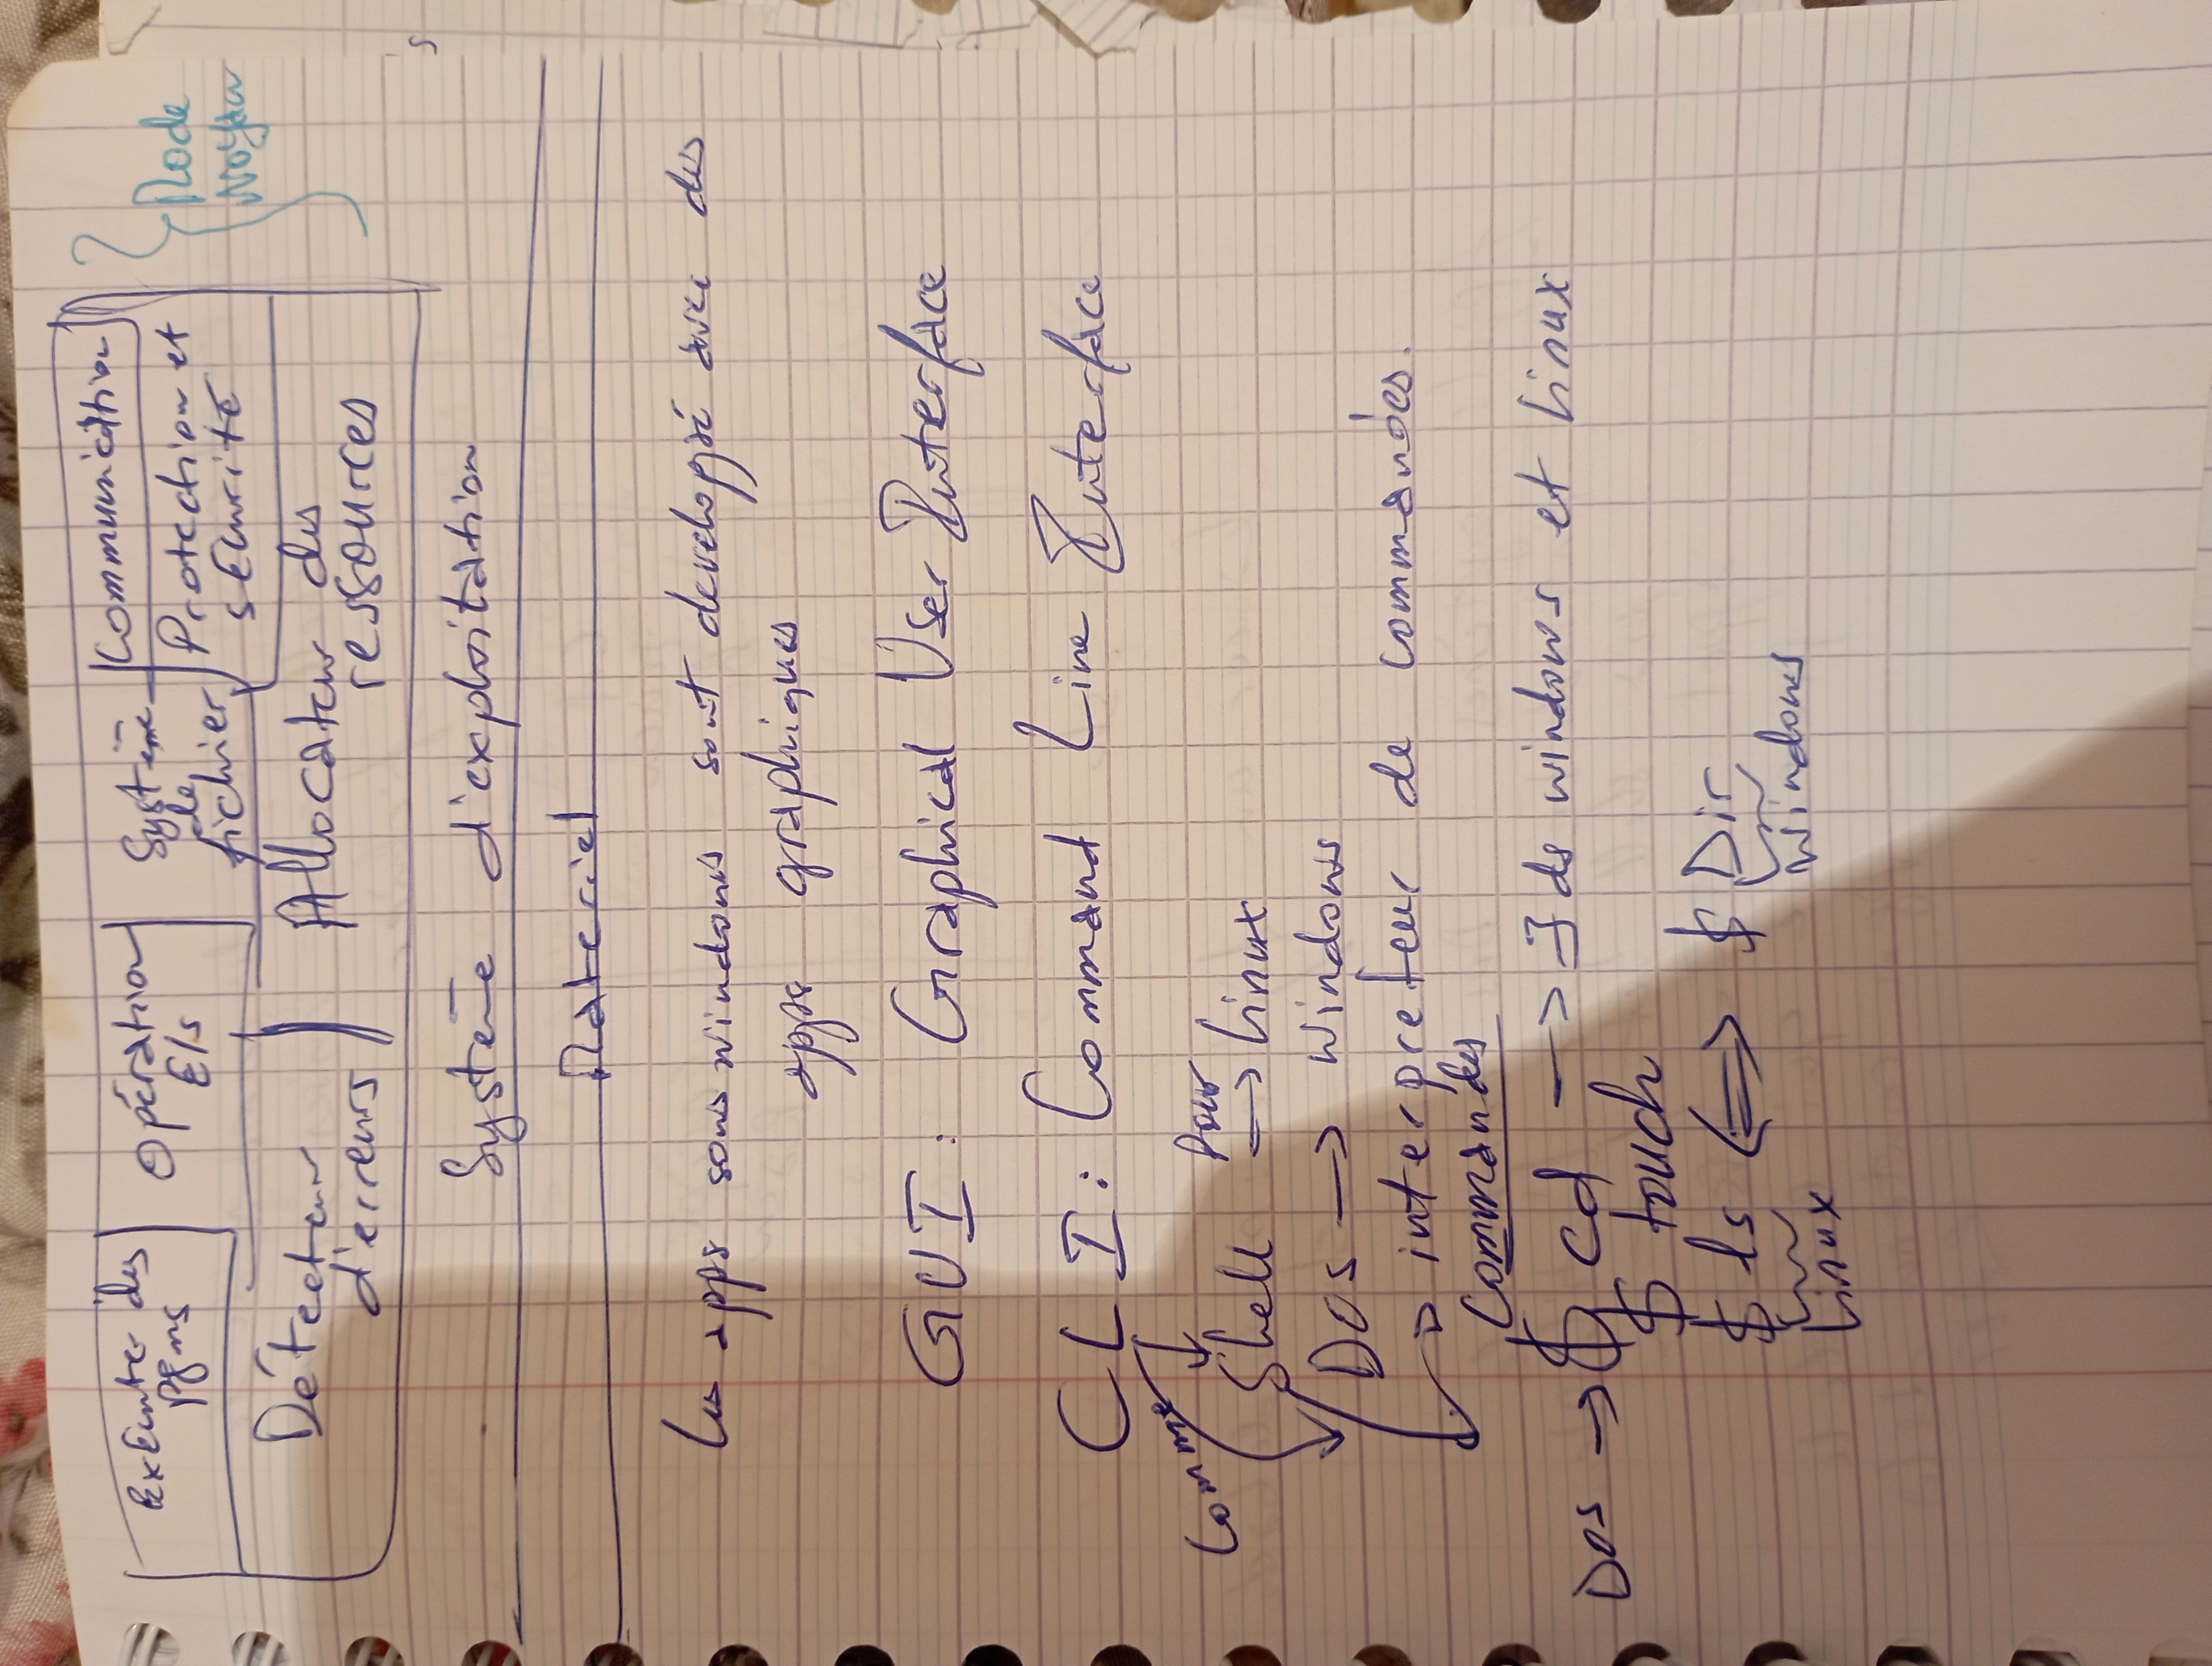 exécuter des
pgms
Opération
E/s
Système
de
fichier
Communication
Protection et
sécurité
Mode
noyau
Détecteur
d'erreurs
Allocateur des
ressources
Système d'exploitation
Matériel
Les apps sous windows sont developpé avec des
apps graphiques
GUI : Graphical User Interface
CLI : Command Line Interface
Comme
Shell pour → linux
Dos → windows
→ interpreteur de commandes.
Commandes
Dos → $ cd → ∃ ds windows et linux
$ touch
$ ls ⟺ $ Dir
linux
windows